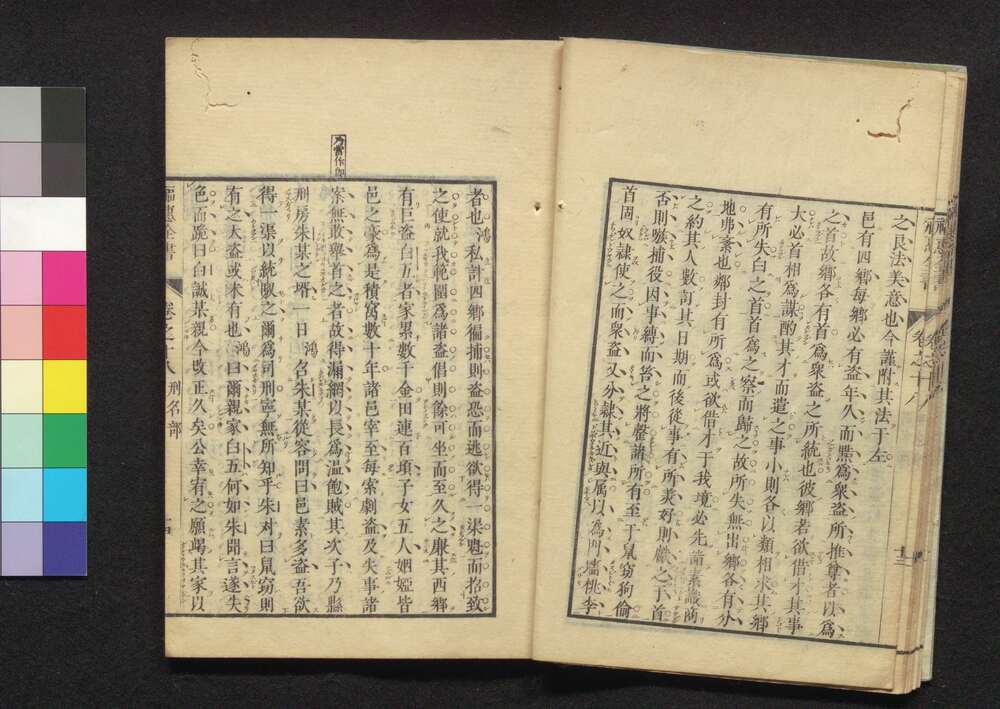 之良法美意也今謹附其法于左
邑有四鄉每鄉必有盗年久而黠為衆盗所推尊者以為
之首故鄉各有首為衆盗之所統也彼鄉若欲借才其事
大必首相為謀酌其才而遣之事小則各以類相求其鄉
有所失白之首首為之察而歸之故所失無出鄉各有分
地弗紊也鄰封有所為或欲借才于我境必先諸素識商
之約其人數訂其日期而後從事有所来好則獻之于首
否則嗾捕役因事縛而笞之將罄諸所有至于鼠窃狗偷
首固奴隷使之而衆盗又分隷其近與属以為門墻桃李
者也鴻私計四鄉徧捕則盗恐而逃欲得一渠魁而招致
之使就我範圍為諸盗倡則餘可坐而至久之廉其西鄉
有巨盗白五者家累數千金田連百頃子女五人姻婭皆
邑之豪為是積窩數十年諸邑宰至每索劇盗及失事諸
案無敢舉首之者故得漏網以長為溫飽賊其次子乃縣
刑房朱某之壻一日鴻名朱某從容問曰邑素多盗吾欲
得一渠以統馭之爾為司刑寧無所知乎朱对曰鼠窃則
有之大盗或未有也鴻曰爾親家白五何如朱聞言遂失
色而跪曰白誠某親今改正久矣公幸宥之願竭其家以
福惠全書
卷之十八
刑名部